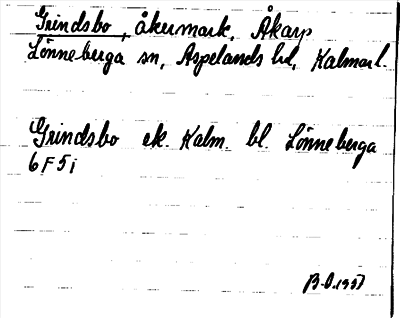 Grindsbo, åkermark, Åkarp
Lönneberga sn, Aspelands hd, Kalmar l.
Grindsbo ek. Kalm. bl. Lönneberga
6 F 5 i